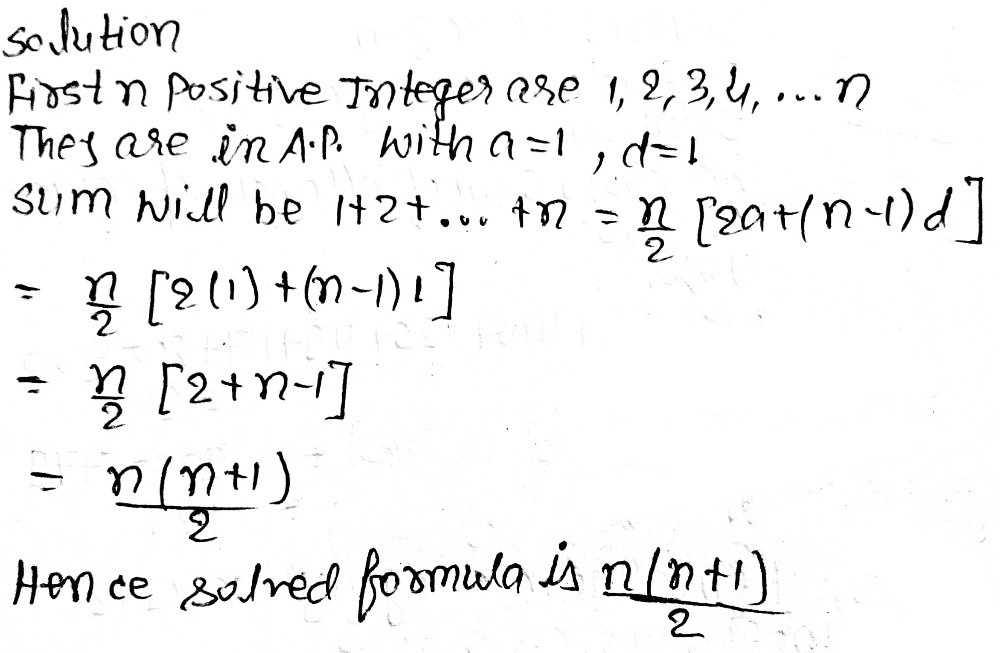 solution
First n Positive Integer are 1, 2, 3, 4, ... n
They are in A.P. with a = 1, d = 1
Sum will be 1+2+... +n = n/2 [2a+(n-1)d]
= n/2 [2(1)+(n-1)1]
= n/2 [2+n-1]
= n(n+1)/2
Hence solved formula is n(n+1)/2